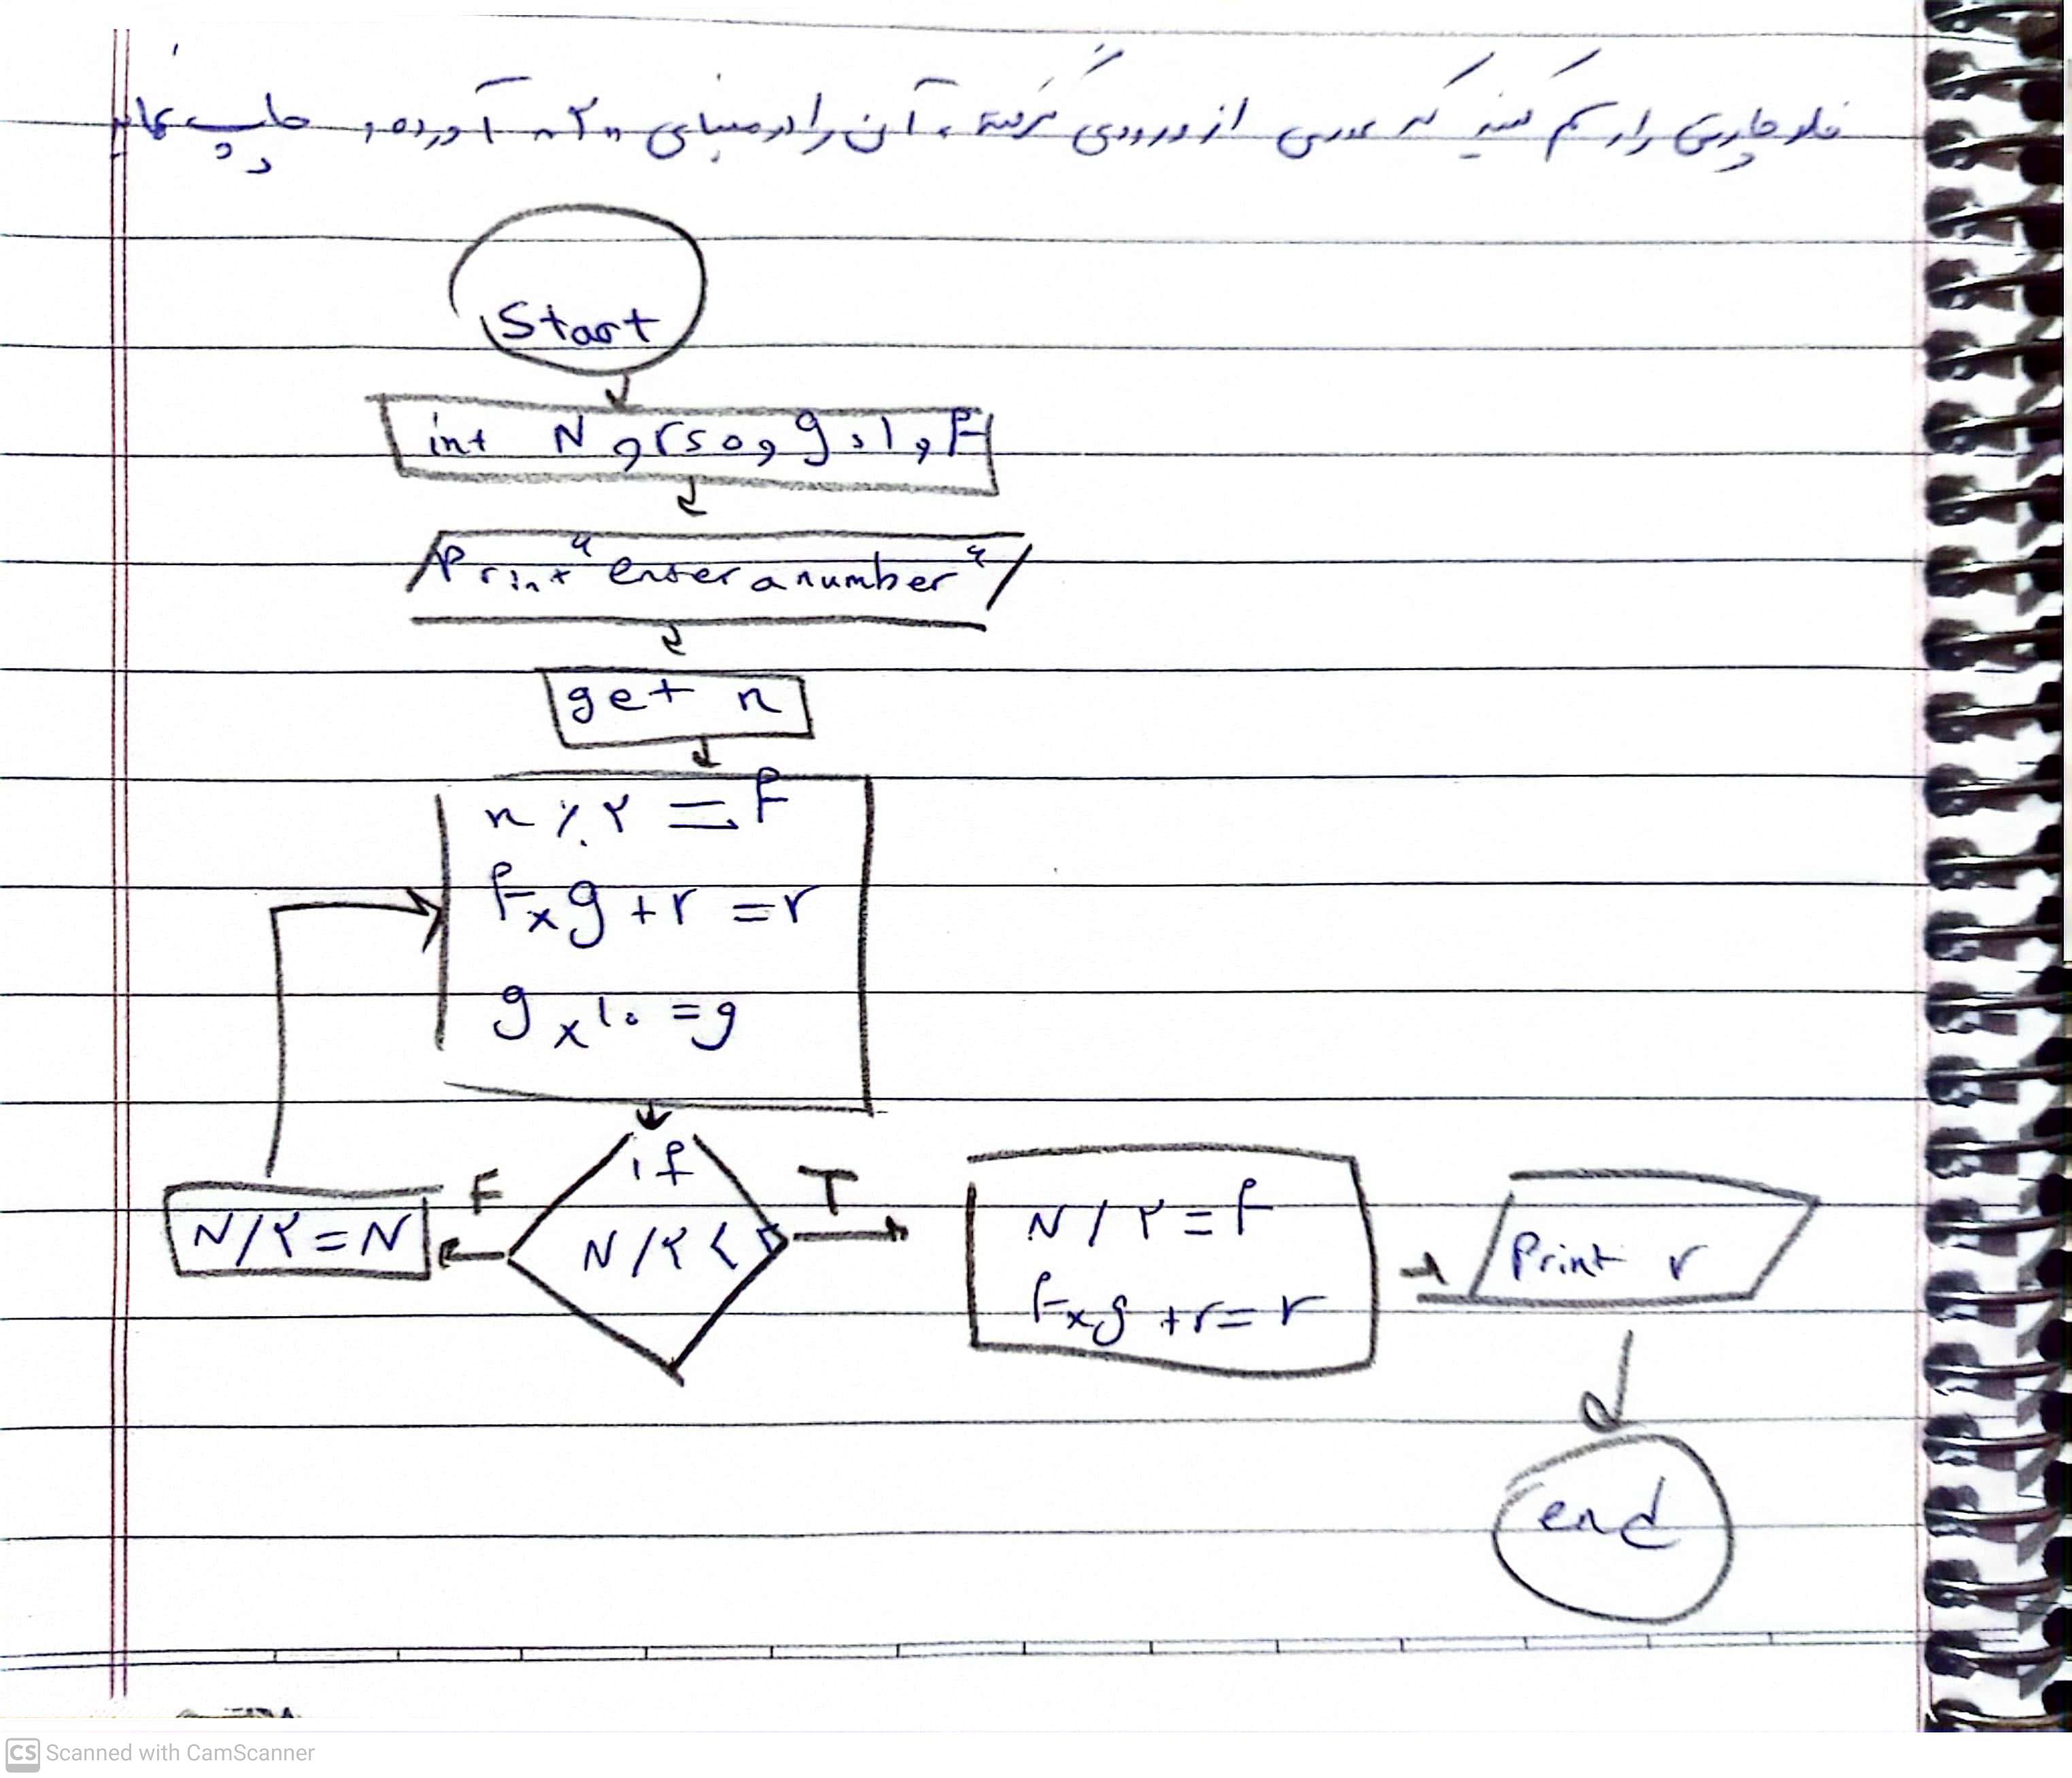 فلوچارتی را رسم کنید که عددی از ورودی گرفته، آن را در مبنای "۲" آورده، چاپ نماید
Start
int N, r=0, g=1, F
Print "enter a number"
get n
n % ۲ = F
F × g + r = r
g × ۱۰ = g
if
N/۲ <
F
T
N/۲ = N
N / ۲ = F
F × g + r = r
Print r
end
CS Scanned with CamScanner